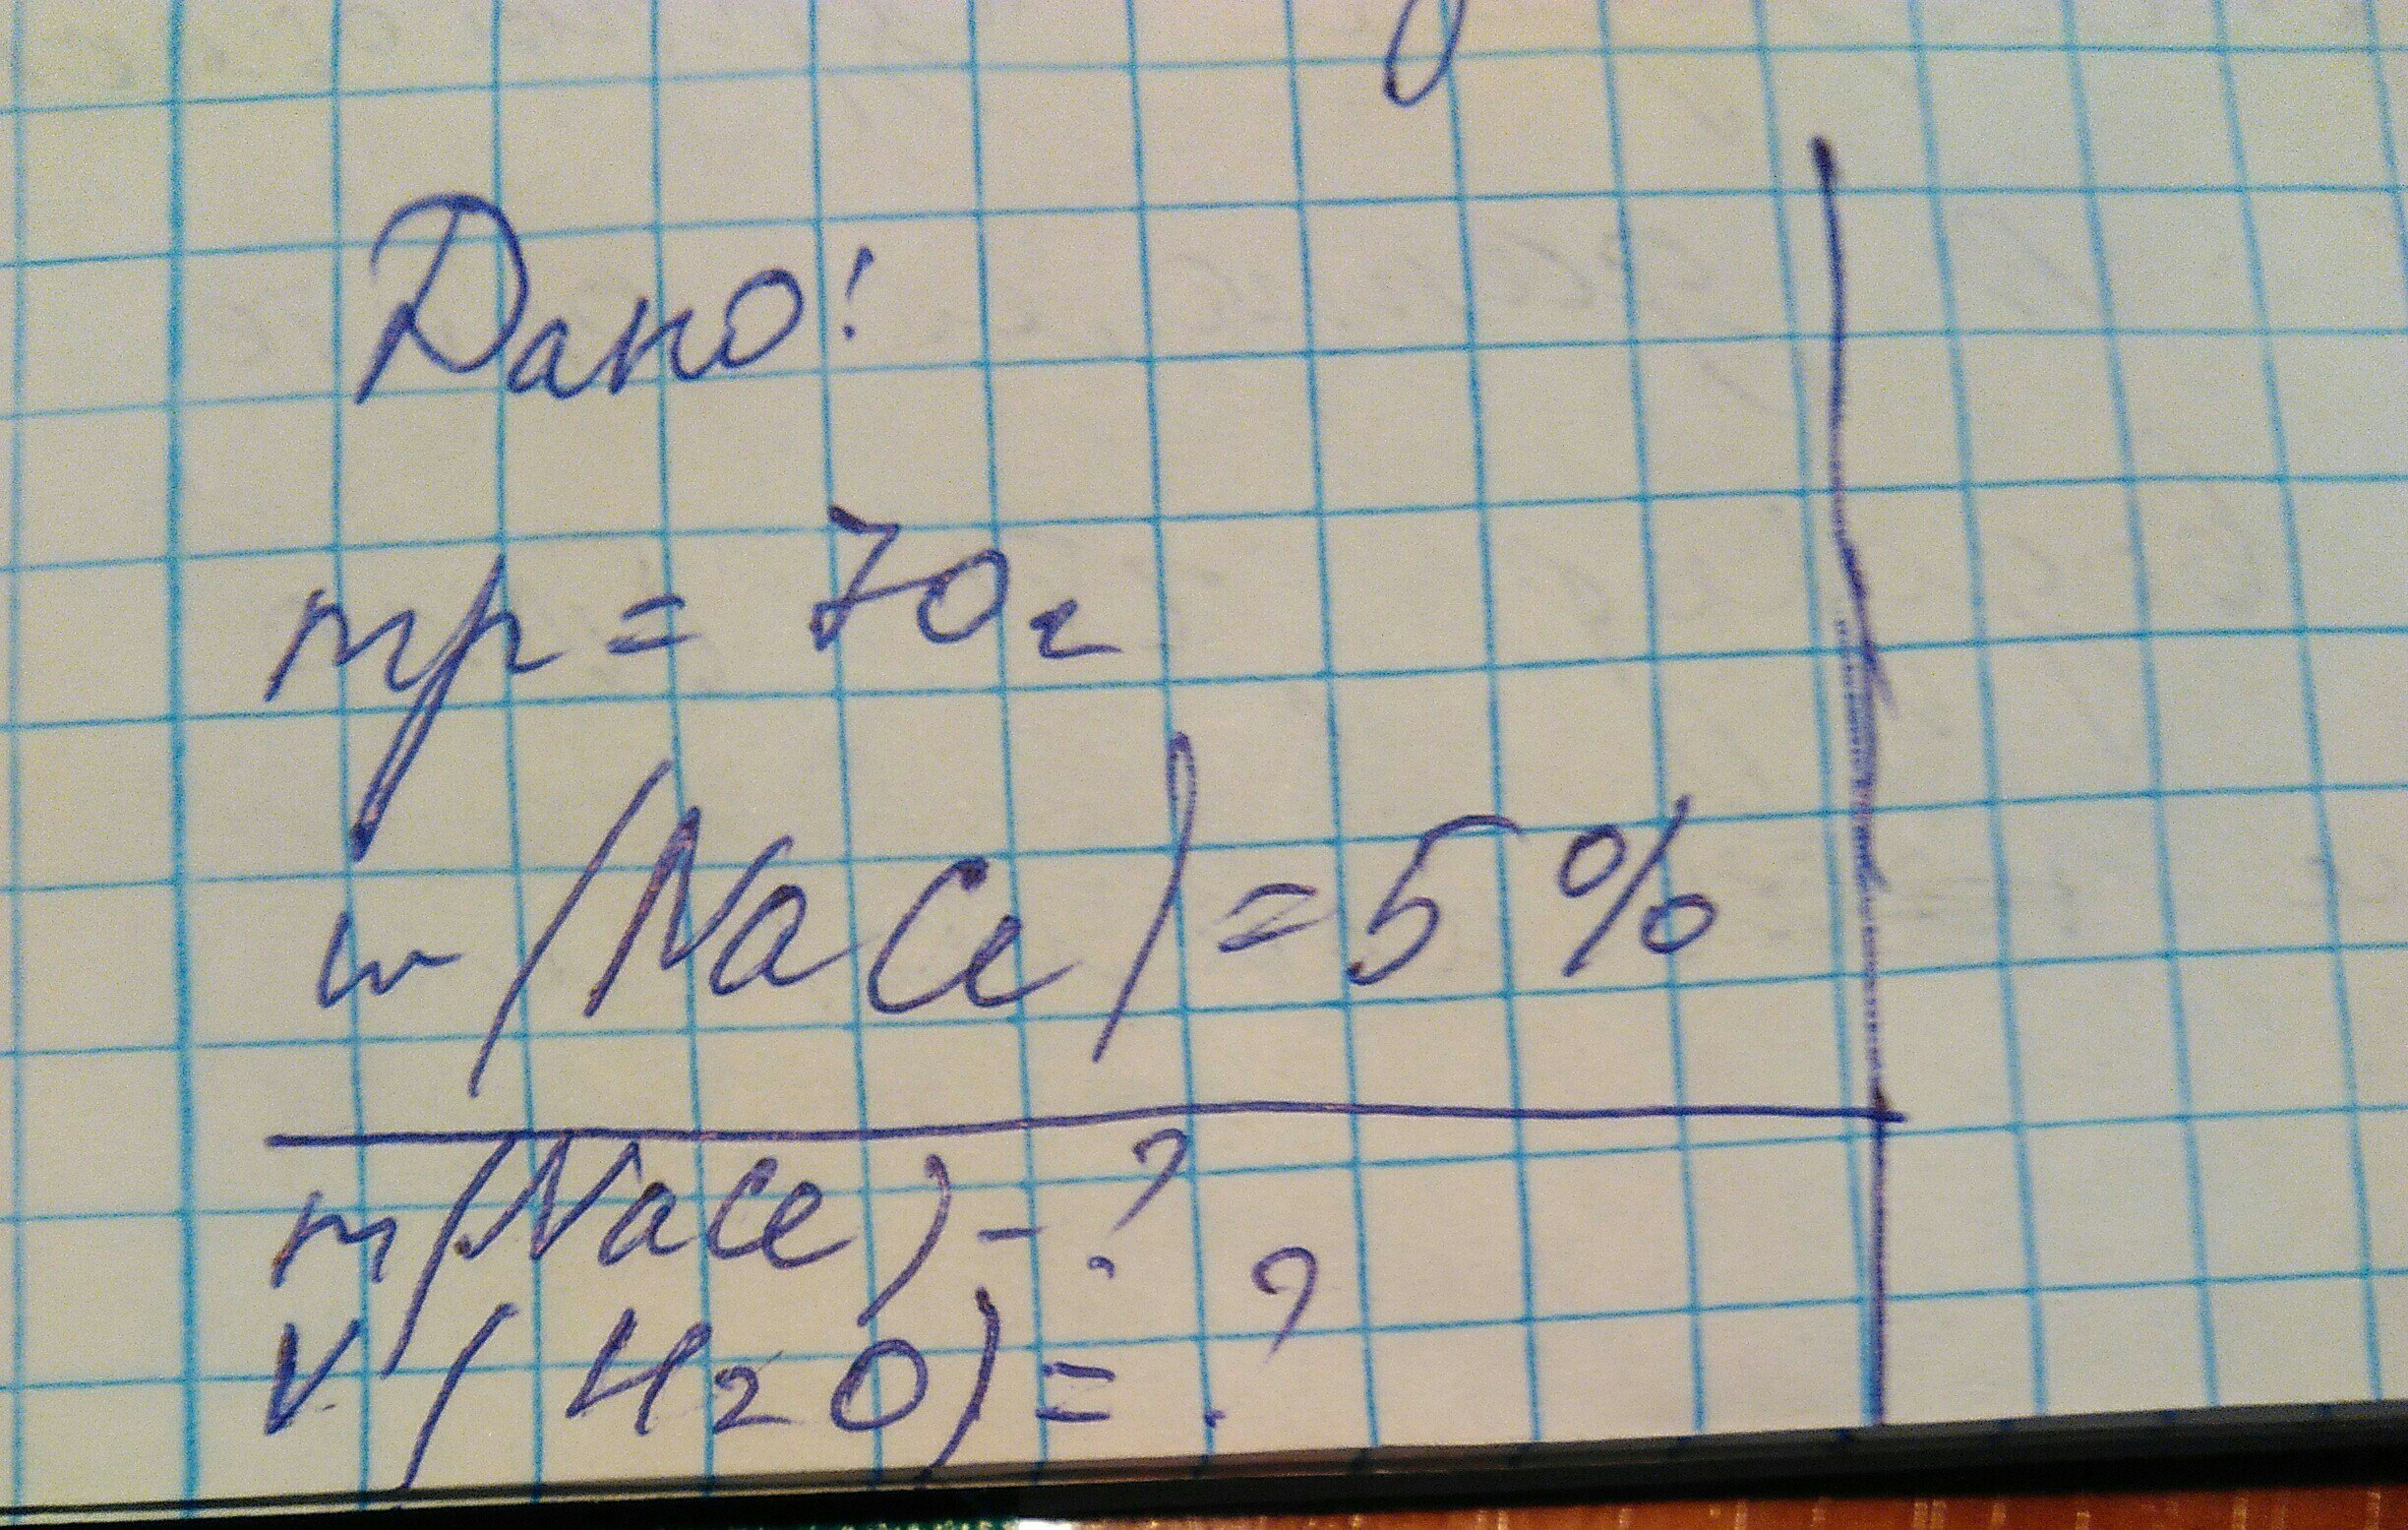 Дано:
mp = 70г
w (NaCl) = 5 %
m(NaCl) - ?
V (H2O) = ?